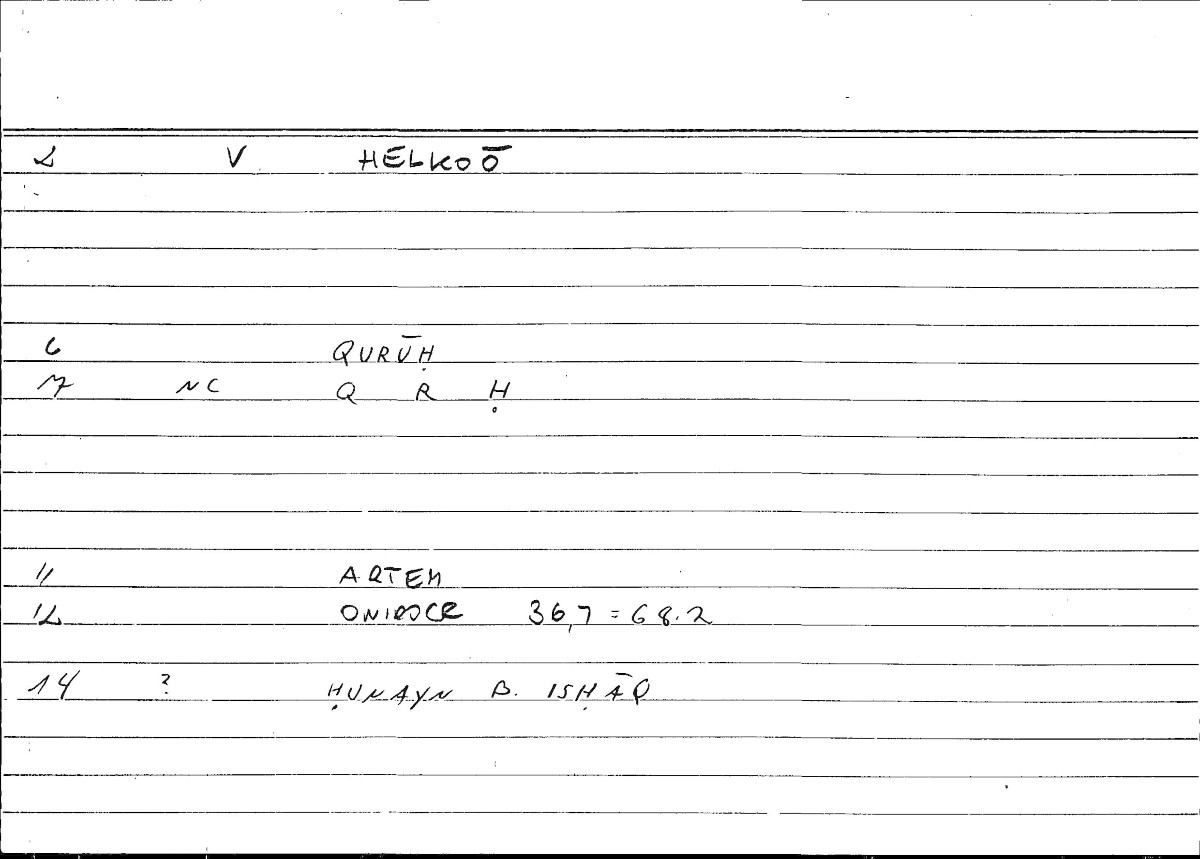 2 V HELKOŌ
6 QURŪḤ
7 NC Q R Ḥ
11 ARTEM
12 ONIROCR 36,7 = 68.2
14 ? ḤUNAYN B. ISḤĀQ